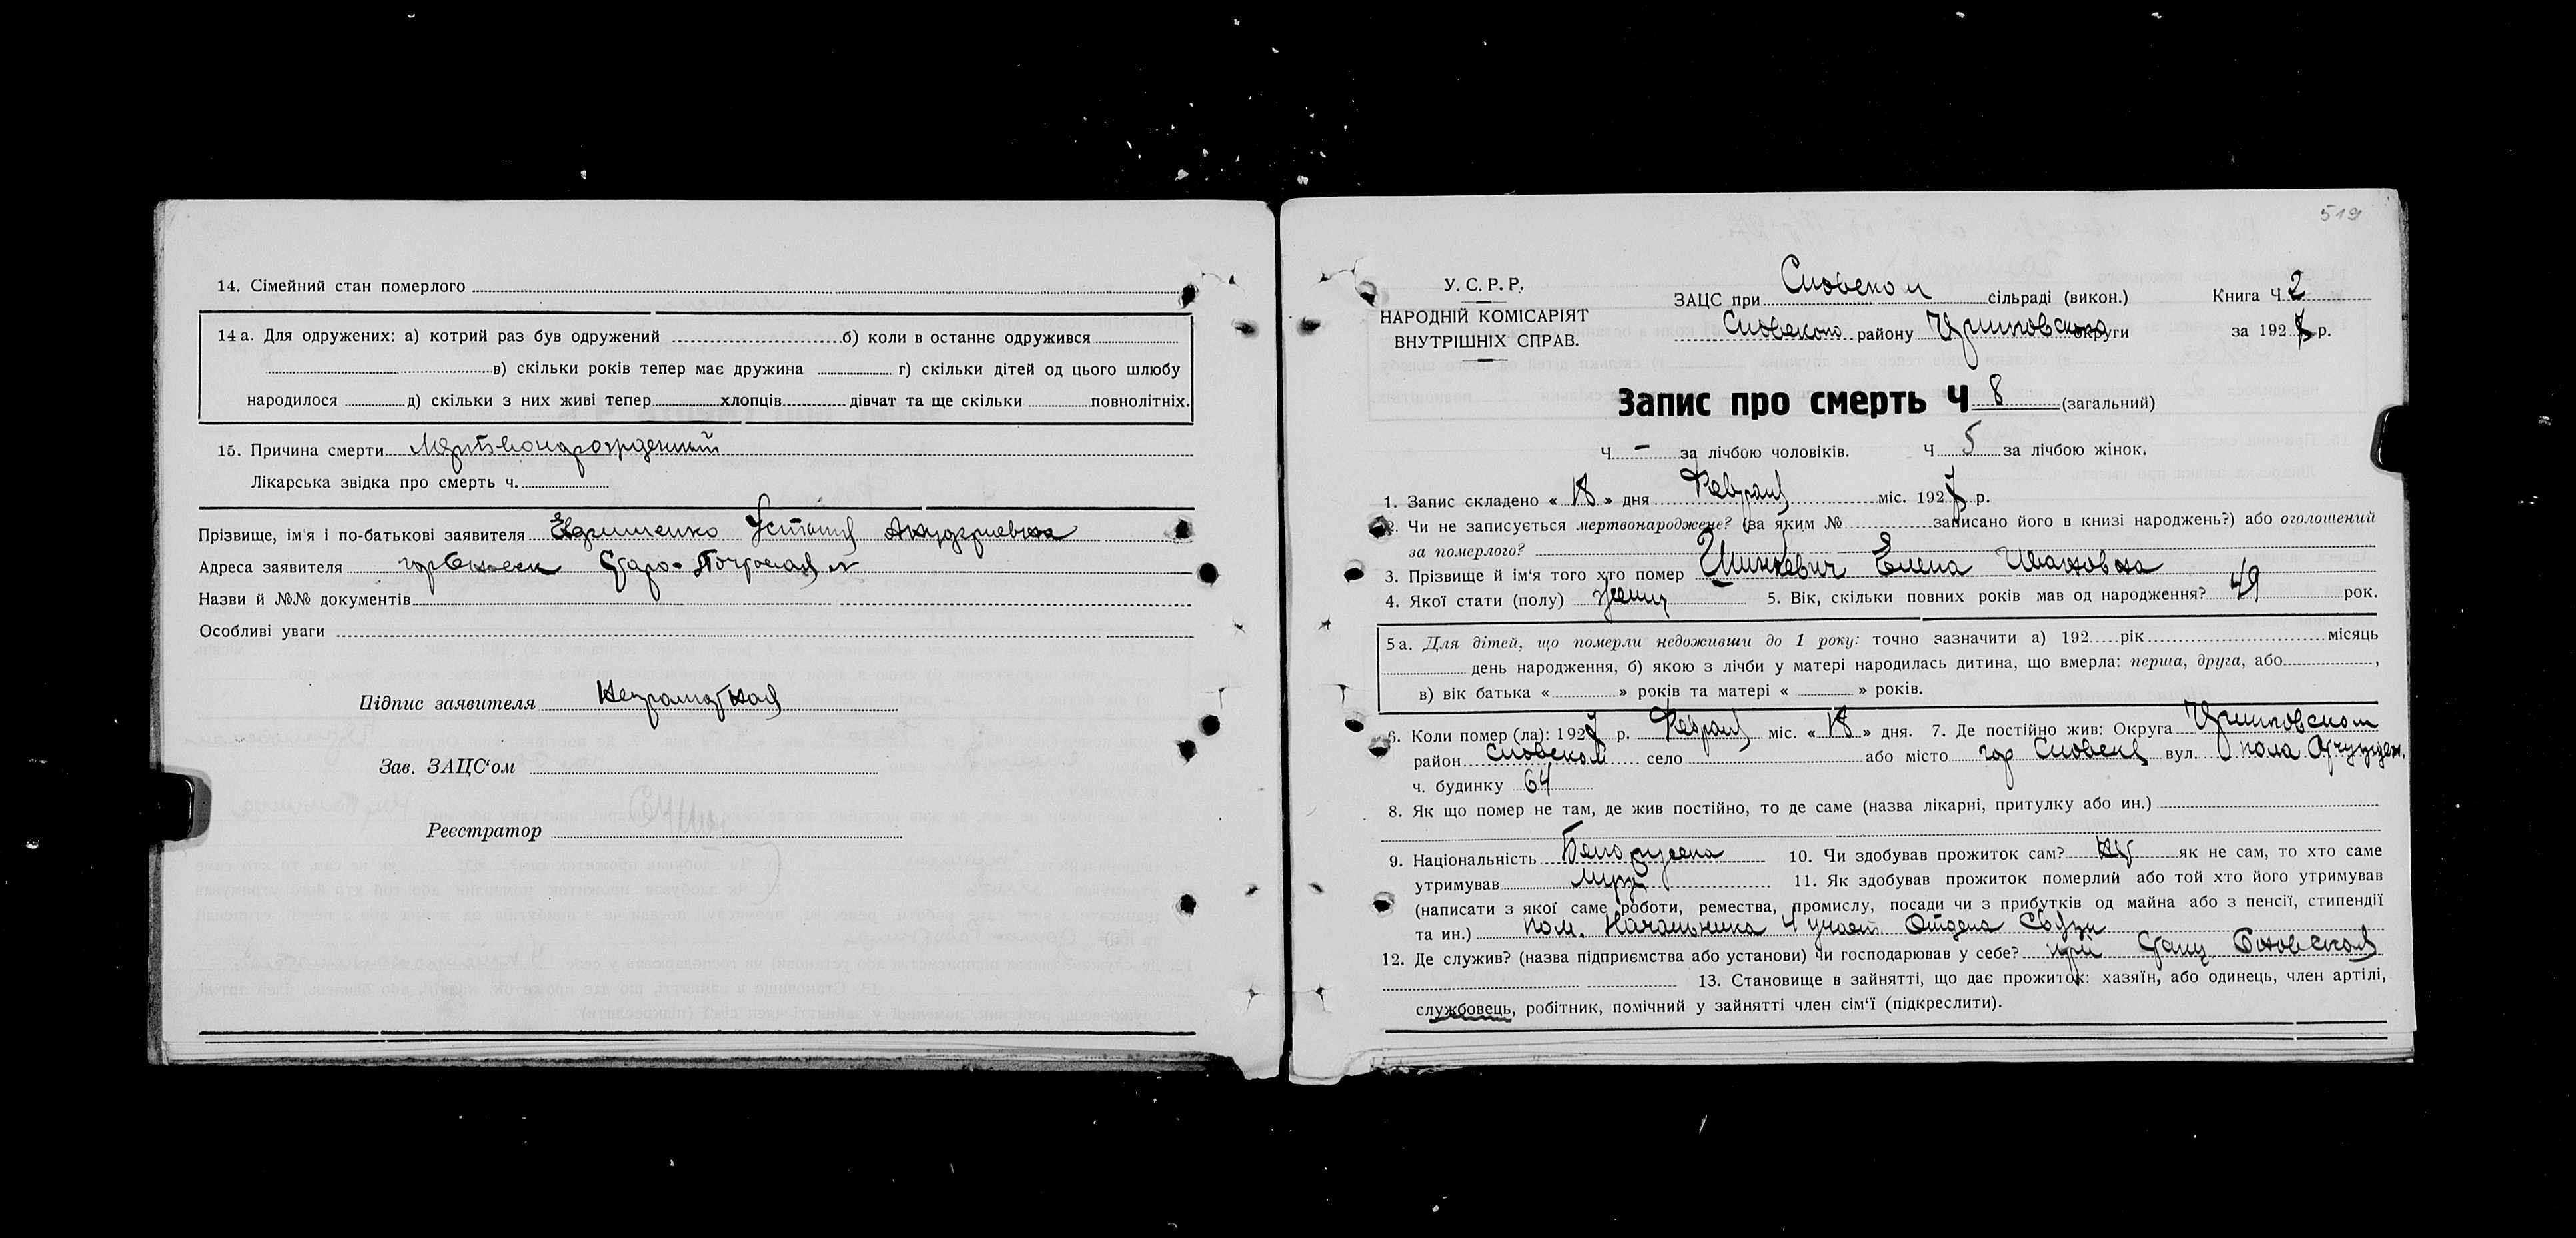 14. Сімейний стан померлого
14а. Для одружених: а) котрий раз був одружений б) коли в останнє одружився
в) скільки років тепер має дружина г) скільки дітей од цього шлюбу
народилося д) скільки з них живі тепер хлопців дівчат та ще скільки повнолітніх.
15. Причина смерти Мертвонарожденный
Лікарська звідка про смерть ч.
Прізвище, ім'я і по-батькові заявителя
Адреса заявителя
Назви й №№ документів
Особливі уваги
Підпис заявителя Неграмотная
Зав. ЗАЦС'ом
Реєстратор
519
У. С. Р. Р.
НАРОДНІЙ КОМІСАРІЯТ
ВНУТРІШНІХ СПРАВ.
ЗАЦС при сільраді (викон.) Книга Ч 2
району округи за 1927 р.
Запис про смерть Ч 8 (загальний)
Ч - за лічбою чоловіків. Ч 5 за лічбою жінок.
1. Запис складено « 18 » дня Февраля міс. 1927 р.
2. Чи не записується мертвонароджене? (за яким № записано його в книзі народжень?) або оголошений
за померлого?
3. Прізвище й ім'я того хто помер Шинкевич Елена Ивановна
4. Якої стати (полу) 5. Вік, скільки повних років мав од народження? 49 рок.
5а. Для дітей, що померли недоживши до 1 року: точно зазначити а) 192 рік місяць
день народження, б) якою з лічби у матері народилась дитина, що вмерла: перша, друга, або ,
в) вік батька « » років та матері « » років.
6. Коли помер (ла): 1927 р. Февраля міс. « 18 » дня. 7. Де постійно жив: Округа
район село або місто гор вул.
ч. будинку 64
8. Як що помер не там, де жив постійно, то де саме (назва лікарні, притулку або ин.)
9. Національність 10. Чи здобував прожиток сам? як не сам, то хто саме
утримував муж 11. Як здобував прожиток померлий або той хто його утримував
(написати з якої саме роботи, ремества, промислу, посади чи з прибутків од майна або з пенсії, стипендії
та ин.) Пом. Начальника 4 участ. Отдела
12. Де служив? (назва підприємства або установи) чи господарював у себе? при Станц
13. Становище в зайнятті, що дає прожиток: хазяїн, або одинець, член артілі,
службовець, робітник, помічний у зайнятті член сім'ї (підкреслити).